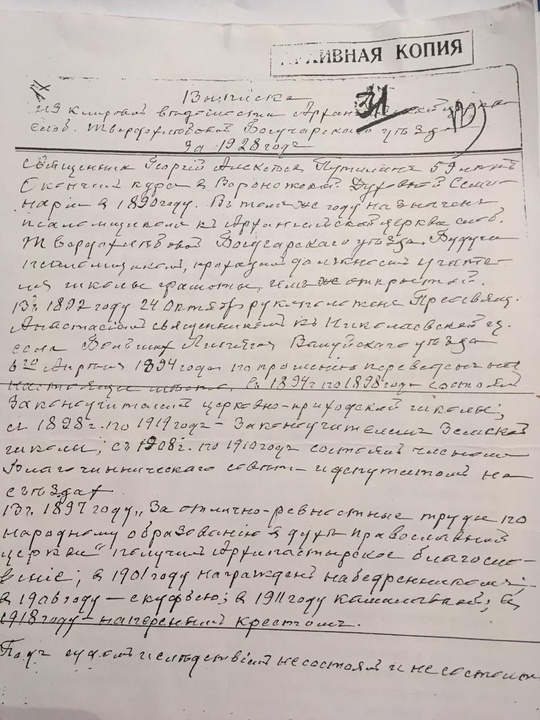 АРХИВНАЯ КОПИЯ
Выписка
из клировой ведомости Архангельской церкви
слоб. Твердохлебовки Богучарского уезда
за 1928 годъ
Священник Георгий Алексеев 59 летъ
Окончил курсъ в Воронежской Духовной Семи-
нарии в 1890 году. В том же году назначен
псаломщиком к Архангельской церкви слоб.
Твердохлебовой Богучарского уезда. Будучи
псаломщиком, проходил должность учите-
ля школы грамоты, им же открытой.
В 1892 году 24 Октября рукоположен Преосвящ.
Анастасием священником къ Николаевской ц.
села Валуйского уезда
6го Апреля 1894 года по прошению переведен на
настоящее место. Съ 1894 г. по 1898 годъ состоял
Законоучителем церковно-приходской школы;
съ 1898 г. по 1919 годъ - Законоучителем Земской
школы; съ 1908 г. по 1910 годъ состоял членом
Благочиннического совета и депутатом на
съезда
В 1897 году „За отлично-ревностные труды по
народному образованию в духе православной
церкви" получил Архипастырское благосло-
вение; в 1901 году награжден набедренником;
в 1906 году - скуфьею; в 1911 году камилавкой; в
1918 году - наперсным крестом.
Под судом и следствием не состоял и не состоит